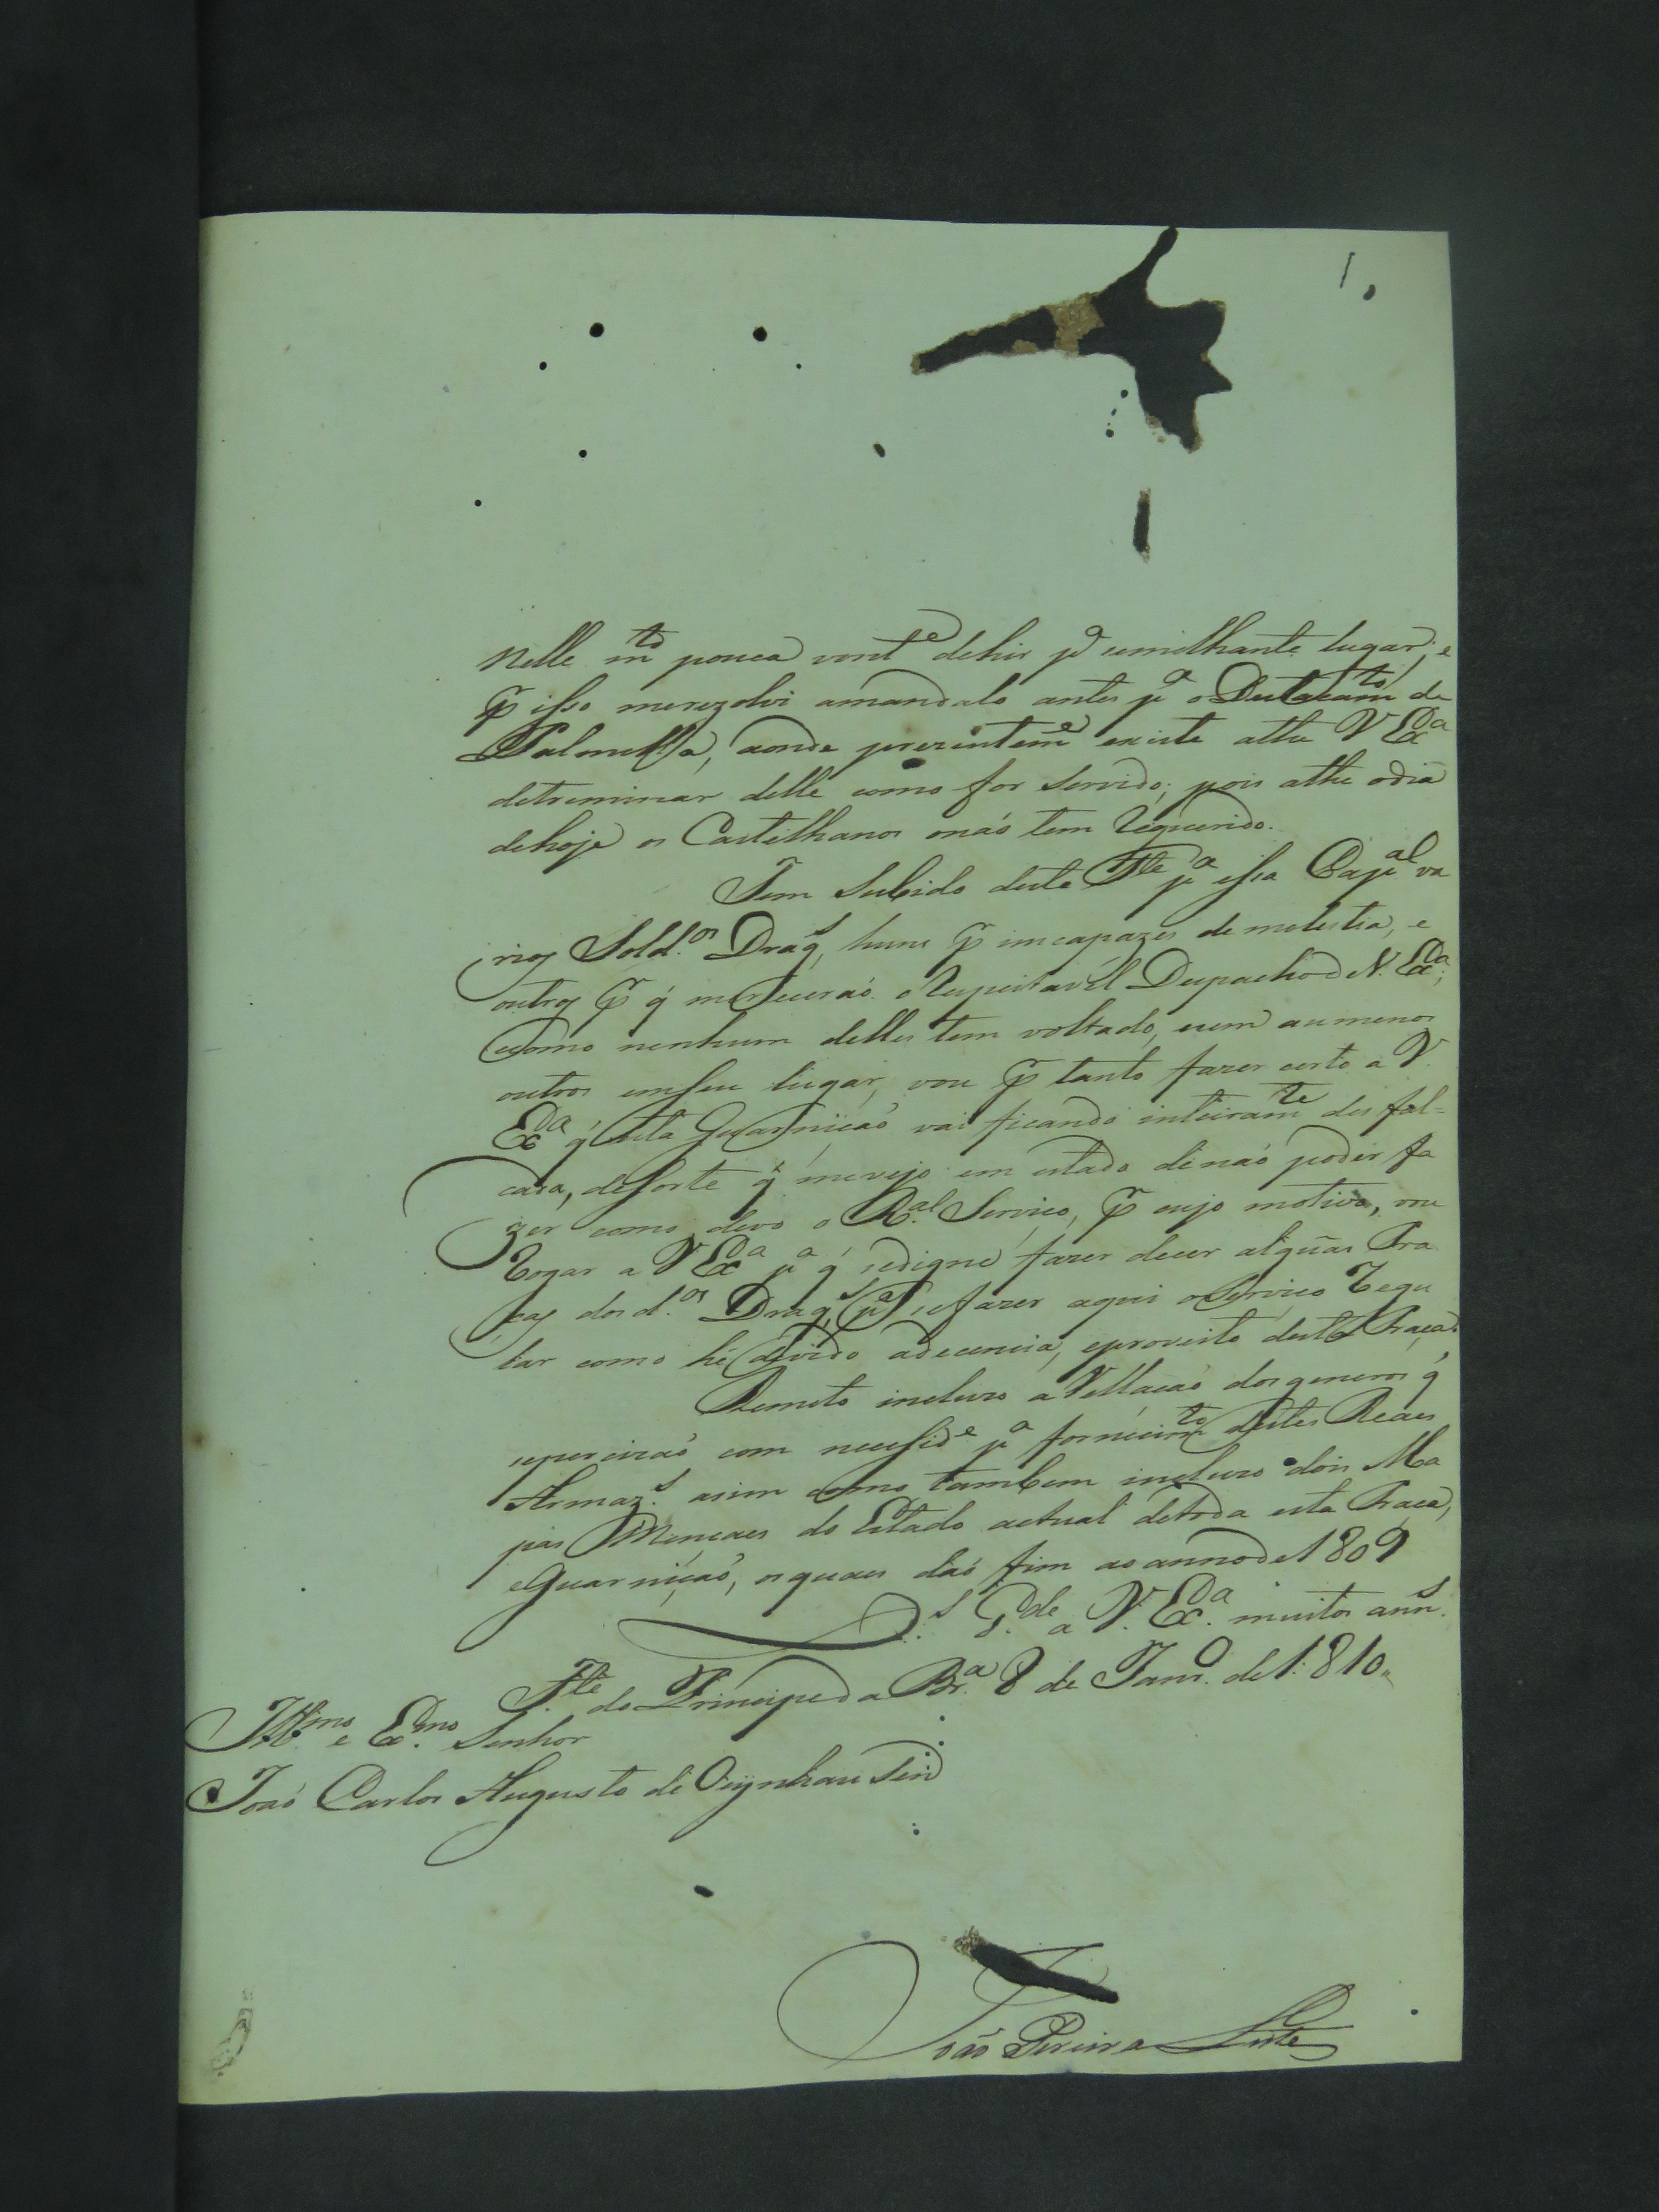 1
Nelle m.to pouca vont.e dehir p.a semilhante lugar; e
p.r isso merezolvi amandalo antes p.a o Destacam.to de
Palmella, aonde prezentem.e existe athe V Ex.a
detreminar delle como for servido; pois athe odia
dehoje os Castelhanos onaó tem requerido.
Tem Subido deste F.te p.a essa Cap.al va
rios Sold.os Drag.s, huns p.r imcapazes de molestia, e
outros p.r q̃ mereceraó o respeitavel Despacho de V. Ex.a;
ecomo nenhum delles tem voltado, enem aumenos
outros emseu lugar, vou p.r tanto fazer certo a V.
Ex.a q̃ esta Guarniçaó vai ficando inteiram.te desfal=
cada, desorte q̃ mevejo em estado denaó poder fa
zer como devo o R.al Serviço, p.r cujo motivo, vou
rogar a V Ex.a p.a q̃ sedigne fazer decer algũas Pra
ças dos d.os Drag.s, p.a se fazer aqui oServiço regu
lar como hé devido adecencia, eproveito desta Praça.
Remeto incluzo a Rellaçaó dos generos q̃
seprecizaó com necessid.e p.a fornecim.to destes Reaes
Armaz.s asim como tambem incluzo dois Ma
pas Mençaes do Estado actual detoda esta Praça,
eGuarniçaó, os quaes daó fim ao anno de 1809
D.s G.de a V. Ex.a muitos ann.s
F.te do Principe da Br.a 8 de Jan.ro de 1810,,
Ill.mo e Ex.mo Senhor
Joaó Carlos Augusto de Oeynhausen
Joaõ Pereira Leite